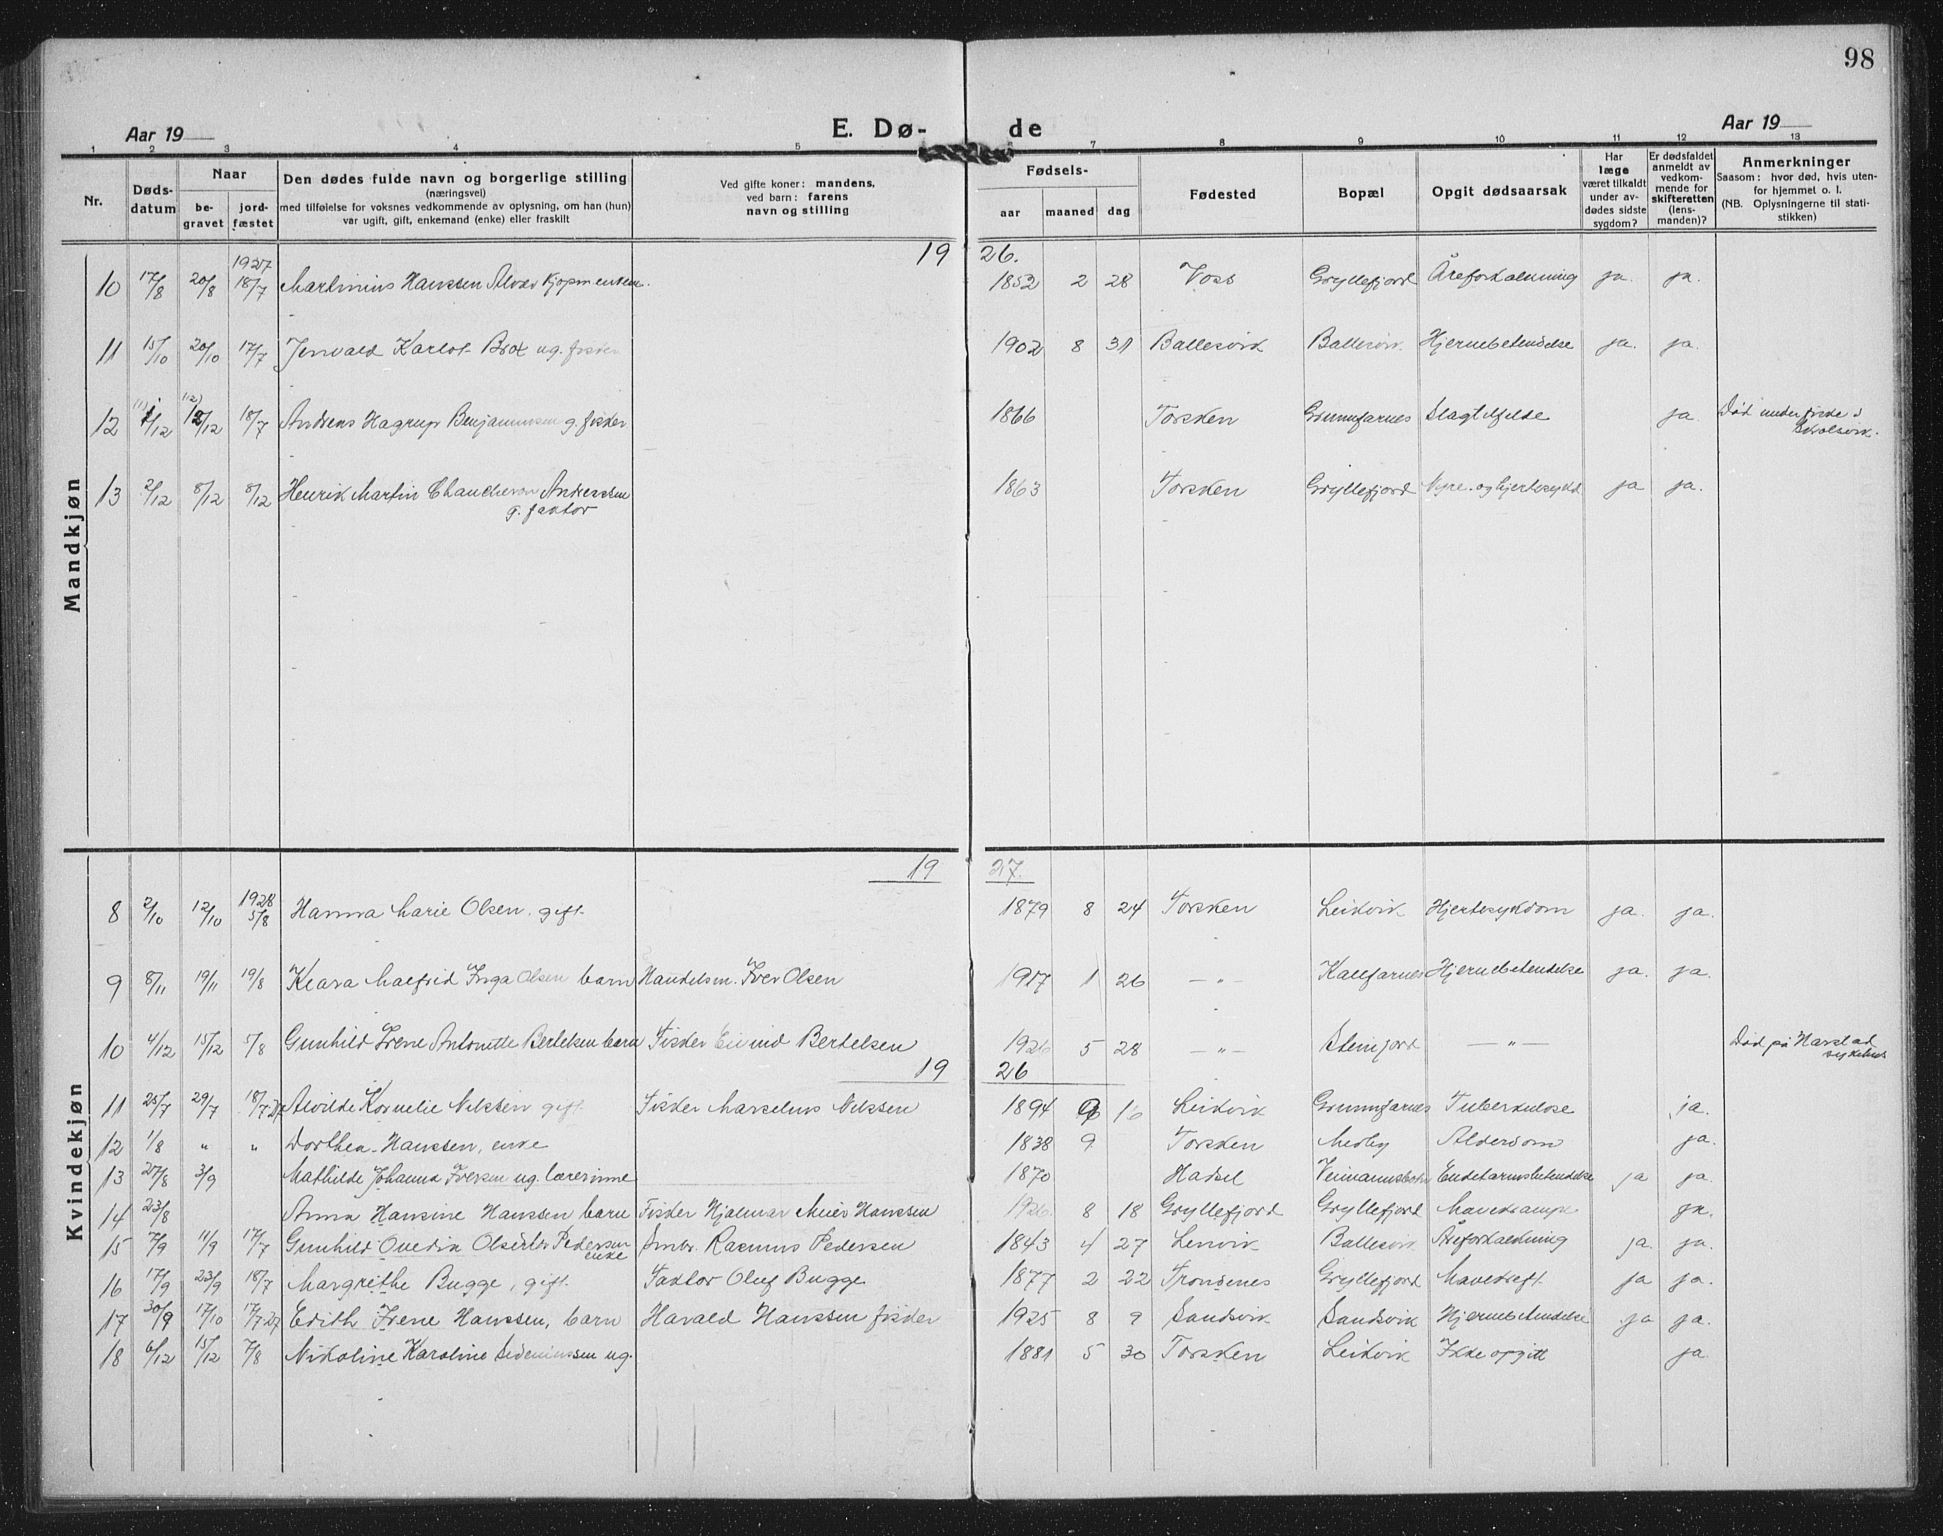 98
Aar 19 E. Dø- de Aar 19
1 2 3 4 5 6 7 8 9 10 11 12 13
Nr. Døds-datum Naar be-gravet jord-fæstet Den dødes fulde navn og borgerlige stilling (næringsvei) med tilføielse for voksnes vedkommende av oplysning, om han (hun) var ugift, gift, enkemand (enke) eller fraskilt Ved gifte koner: mandens, ved barn: farens navn og stilling Fødsels- aar maaned dag Fødested Bopæl Opgit dødsaarsak Har læge været tilkaldt under av-dødes sidste sygdom? Er dødsfaldet anmeldt av vedkom-mende for skifteretten (lens-manden)? Anmerkninger Saasom: hvor død, hvis uten-for hjemmet o. l. (NB. Oplysningerne til stati-stikken)
Mandkjøn
19 26.
1927
10 17/8 20/8 18/7 Martinius Hanssen 1852 2 28 Voss Gryllefjord Åreforkalkning ja. ja.
11 15/10 20/10 17/7 Jenvald Karlot Brox ug. fisker 1902 8 31 Ballesvik Ballesvik Hjernebetendelse ja. ja.
12 /12 /12 18/7 Andreas Hagrup Benjaminsen g. fisker 1866 Torsken Grunnfarnes Slagtilfelde ja. Død under fiske i
13 2/12 8/12 8/12 Henrik Martin Andersen 1863 Torsken Gryllefjord Nyre- og hjertesykd ja ja.
g. faktor
Kvindekjøn
19 27.
1928
8 2/10 12/10 5/8 Hanna Marie Olsen, gift 1879 8 24 Torsken Leikvik Hjertesykdom ja. ja.
9 8/11 19/11 19/8 Klara Malfrid Inga Olsen barn Handelsm. Iver Olsen 1917 1 26 — " — Kalfarnes Hjernebetendelse ja. ja.
10 4/12 15/12 5/8 Gunhild Irene Antonette Bertelsen barn Fisker Eivind Bertelsen 1926 5 28 — " — Steinfjord — " — Død på Harstad
sykehus
19 26
11 25/7 29/7 18/7 27 Alvilde Kornelie Nilssen gift Fisker Marselius Nilssen 1894 9 16 Leikvik Grunnfarnes Tuberkulose ja.
12 1/8 " " Dorthea Hanssen, enke 1838 9 Torsken Medby Alderdom ja.
13 27/8 3/9 Mathilde Johanna Iversen ug. lærerinne 1870 Hadsel Endetarmsbetendelse ja ja.
14 23/8 Anna Hansine Hanssen barn Fisker Hjalmar Meier Hanssen 1926. 8 18 Gryllefjord Gryllefjord Mavekrampe ja.
15 7/9 11/9 17/7 Gunhild Ovedia Olsdtr Pedersen Rasmus Pedersen 1843 4 27 Lenvik Ballesvik Åreforkalkning ja. ja.
enke
16 17/9 23/9 18/7 Margrethe Bugge, gift. Faktor Oluf Bugge 1877 2 22 Trondenes Gryllefjord Mavekreft ja ja.
17 30/9 17/10 17/7 27 Edith Irene Hanssen, barn Harald Hanssen fisker 1925 8 9 Sandsvik Sandsvik Hjernebetendelse ja ja.
18 6/12 15/12 7/8 Nikoline Karoline ug. 1881 5 30 Torsken Leikvik Ikke opgitt ja.